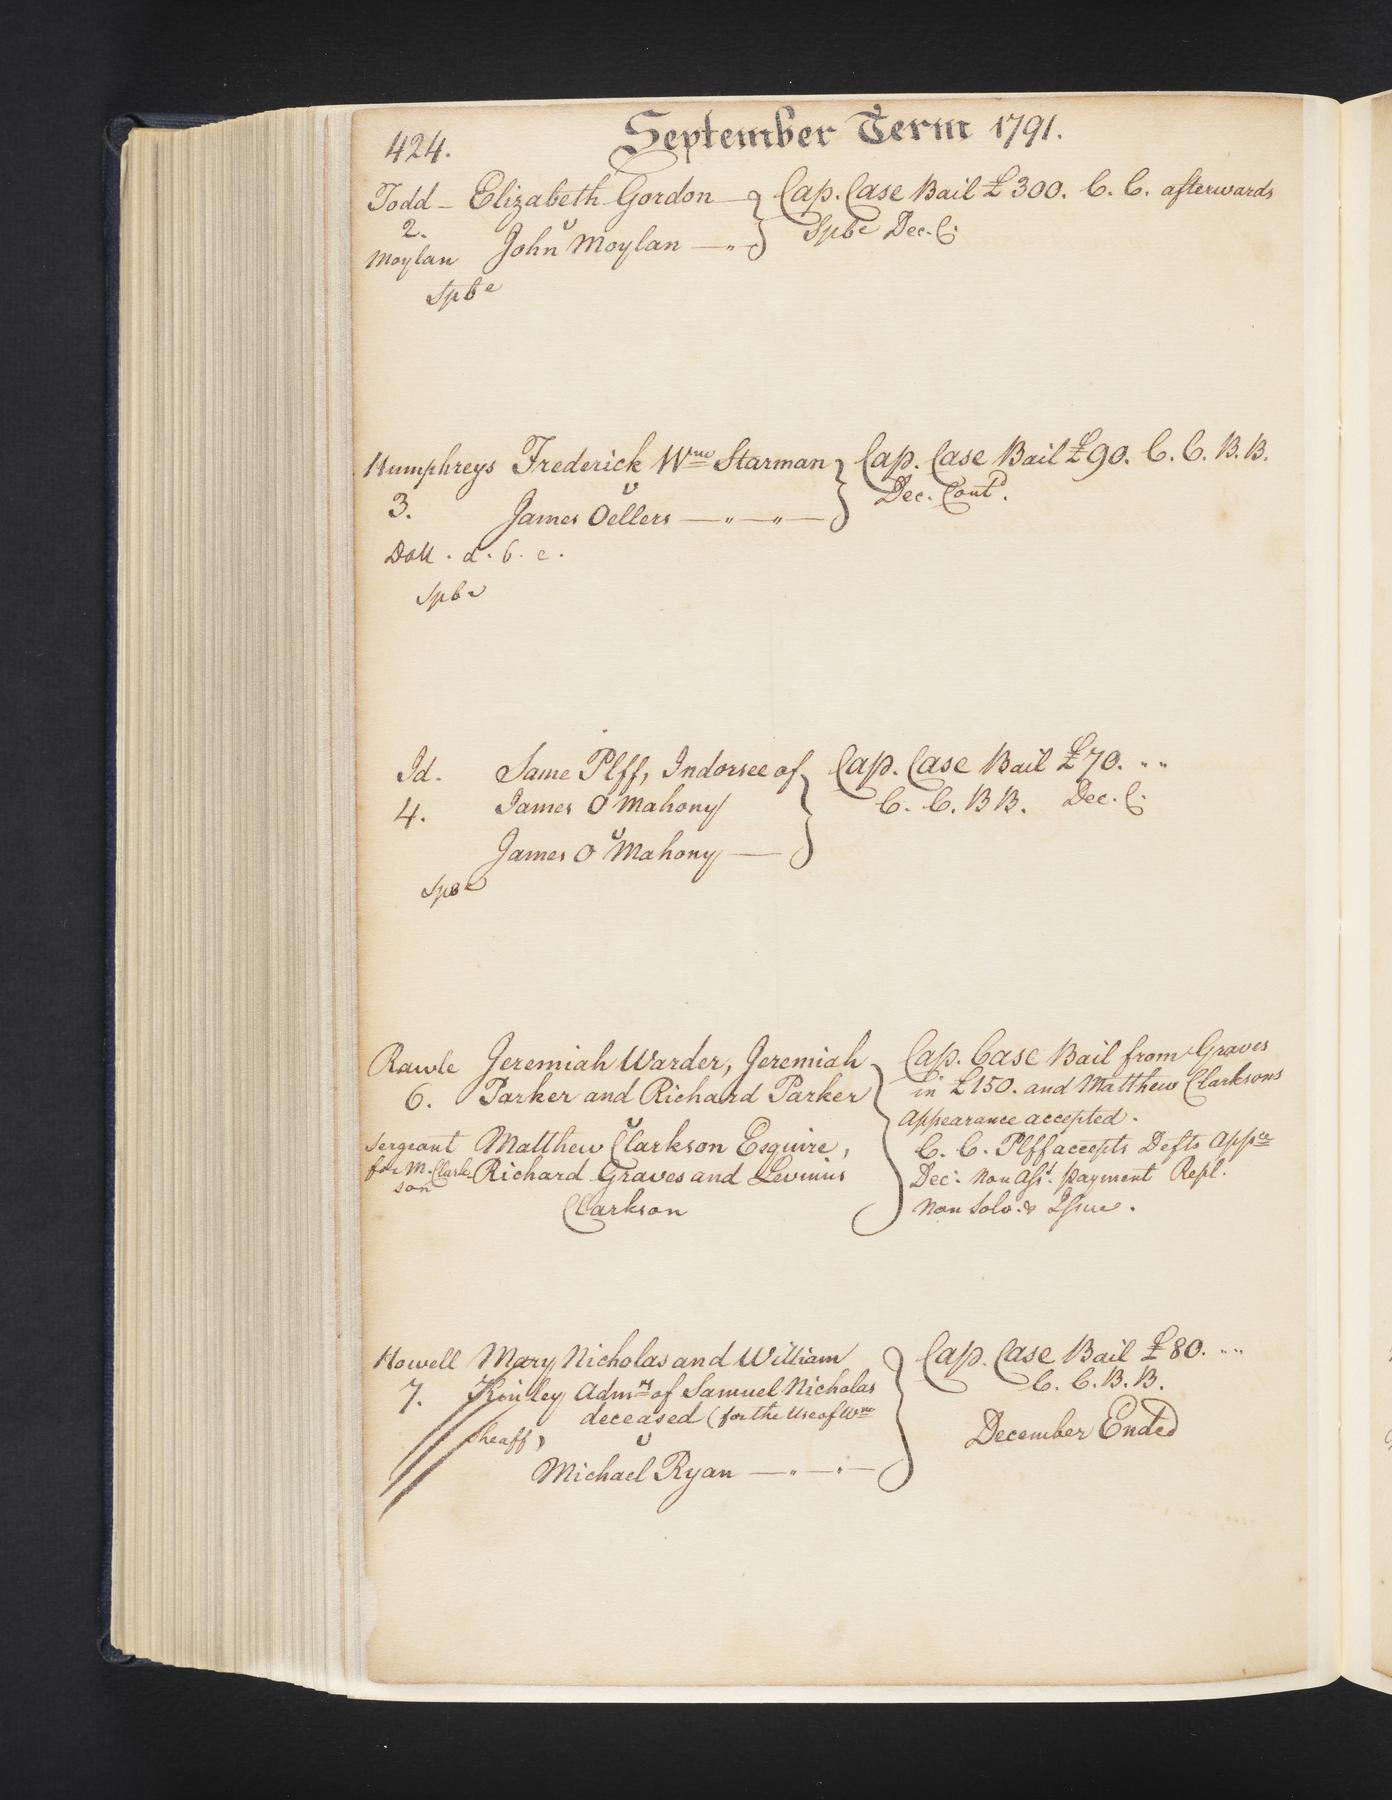 424.
September Term 1791.
Todd - Elizabeth Gordon Cap. Case Bail £300. C. C. afterwards
2. v Spbe Dec. C.
Moylan John Moylan
Spbe
Humphreys Frederick Wm Starman Cap. Case Bail £90. C. C. B. B.
3. v Dec. Contd.
James Oellers
Dall. d. b. e.
Spbe
Id. Same Plff, Indorsee of Cap. Case Bail £70.
4. James O Mahony C. C. B B. Dec. C.
v
James O Mahony
Spbe
Rawle Jeremiah Warder, Jeremiah Cap. Case Bail from Graves
6. Parker and Richard Parker in £150. and Matthew Clarksons
v Appearance accepted.
Sergeant Matthew Clarkson Esquire, C. C. Plff accepts Defts Appce
for M. Clark Richard Graves and Levinius Dec: Non Asst. payment Repl.
son Clarkson Non Solv. & Issue.
Howell Mary Nicholas and William Cap. Case Bail £80.
7. Kinley Admrs of Samuel Nicholas C. C. B. B.
deceased (for the Use of Wm
Sheaff) December Ended
v
Michael Ryan